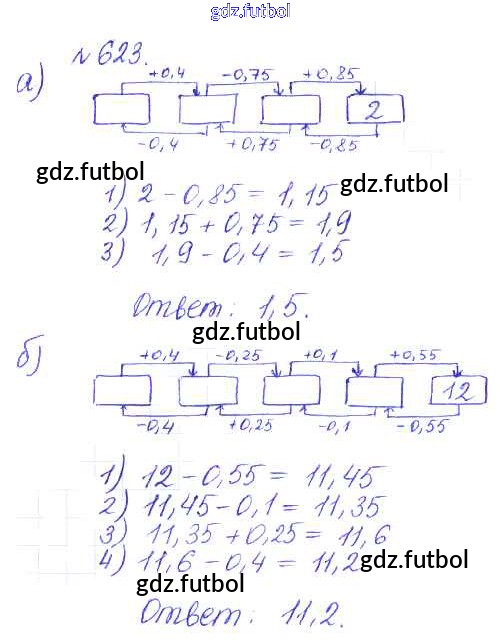 gdz.futbol
№ 623.
а)
+0,4 -0,75 +0,85
2
-0,4 +0,75 -0,85
gdz.futbol
gdz.futbol
1) 2 - 0,85 = 1,15
2) 1,15 + 0,75 = 1,9
3) 1,9 - 0,4 = 1,5
Ответ: 1,5.
gdz.futbol
б)
+0,4 -0,25 +0,1 +0,55
12
-0,4 +0,25 -0,1 -0,55
1) 12 - 0,55 = 11,45
2) 11,45 - 0,1 = 11,35
3) 11,35 + 0,25 = 11,6
4) 11,6 - 0,4 = 11,2
gdz.futbol
gdz.futbol
Ответ: 11,2.